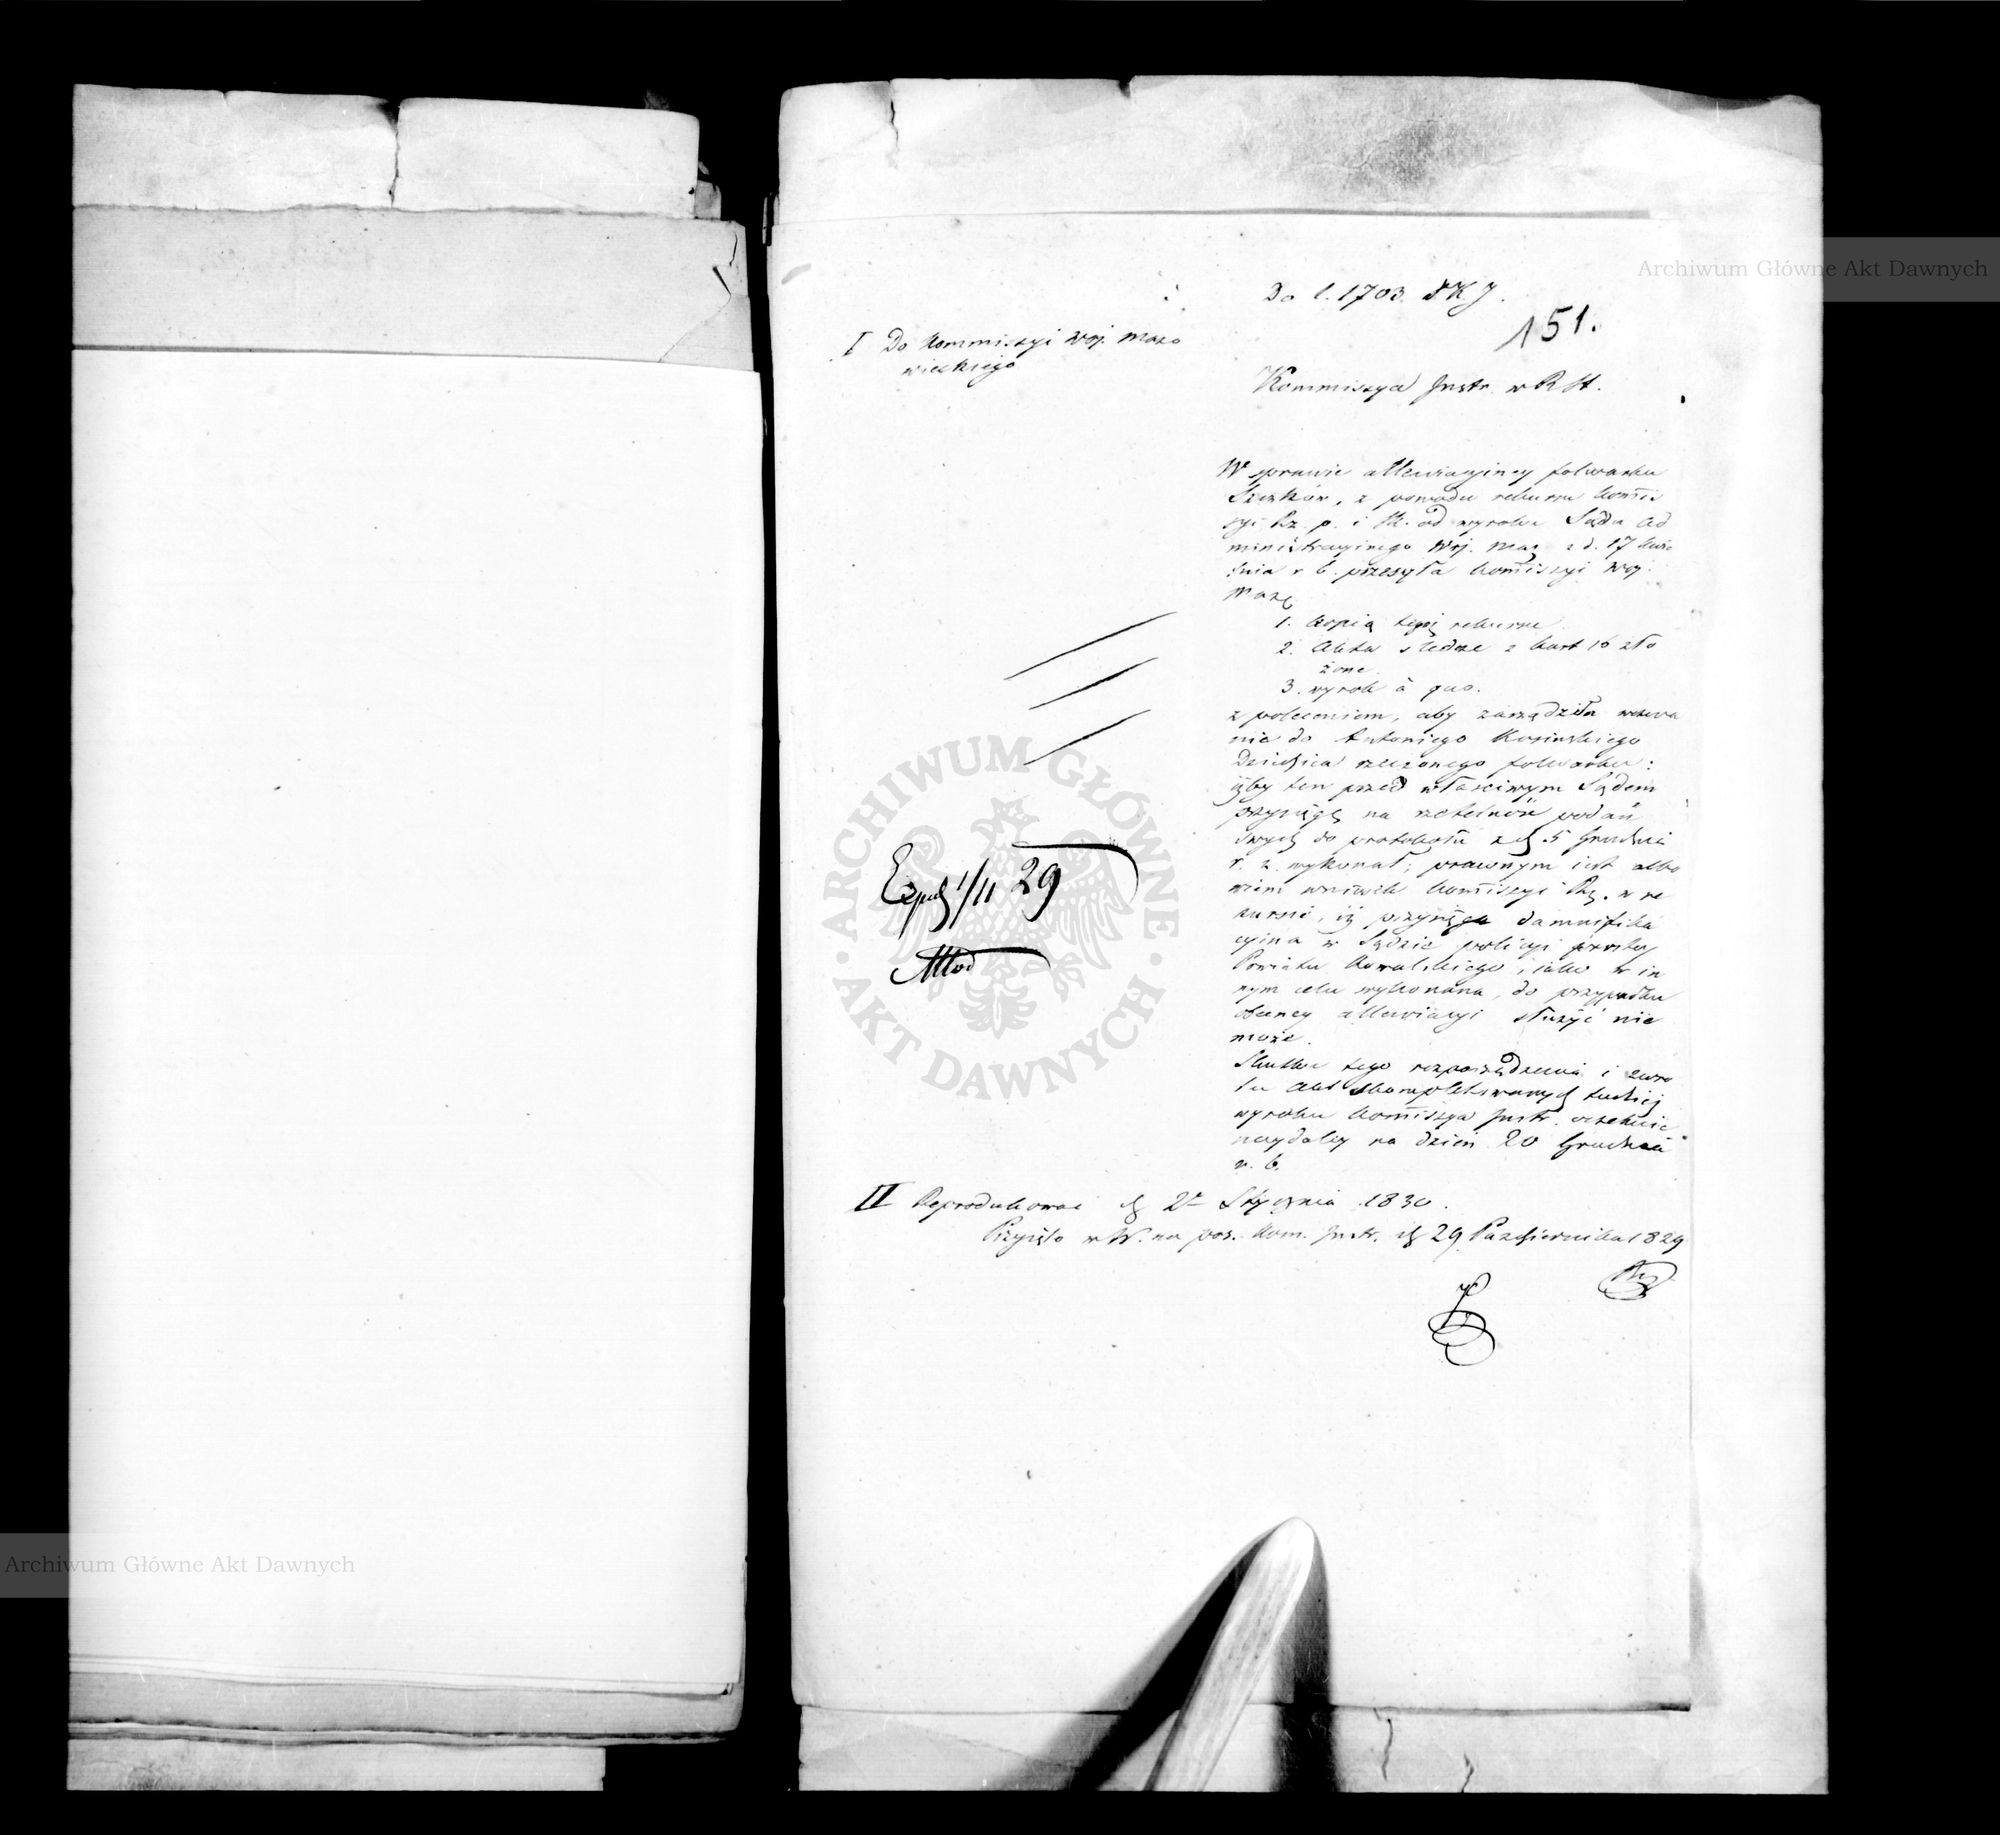 Do l. 1703. DKJ.
151.
I Do Kommissyi Woj. Mazo
wieckiego
Kommissya Instr. w R St.
W sprawie allewiacyiney folwarku
z powodu rekursu Kom̃is
syi Rz. p. i Sk. od wyroku Sądu Ad
ministracyinego Woj. Maz z d. 17 Kwie
tnia r b. przesyła Kom̃issyi Woj.
Maz
1. Kopią tegoż rekursu
2. Akta śledcze z kart 16 zło
żone.
3. wyrok à quo.
z poleceniem, aby zarządziła wezwa
nie do Antoniego Kosinskiego
Dziedzica rzeczonego folwarku:
iżby ten przed właściwym Sądem
przysięgę na rzetelność podań
swych do protokułu z d. 5 Grudnia
r. z. wykonał; prawnym iest albo
wiem wniosek Kom̃issyi Rz. w re
kursie, iż przysięga damnifika
cyina w Sądzie policyi prostey
Powiatu Kowalskiego, iako w in
nym celu wykonana, do przypadku
obecney allewiacyi służyć nie
może.
Skutku tego rozporządzenia i zwro
tu Akt skompletowanych tudzież
wyroku Kom̃issya Instr. oczekuie
naydaley na dzień 20 Grudnia
r. b.
II Reprodukować d. 2 Stycznia 1830.
Przyięto w W. na pos. Kom. Instr. d. 29 Pazdziernika 1829
Exped 1/11 29
ARCHIWUM GŁÓWNE
AKT DAWNYCH
Archiwum Główne Akt Dawnych
Archiwum Główne Akt Dawnych